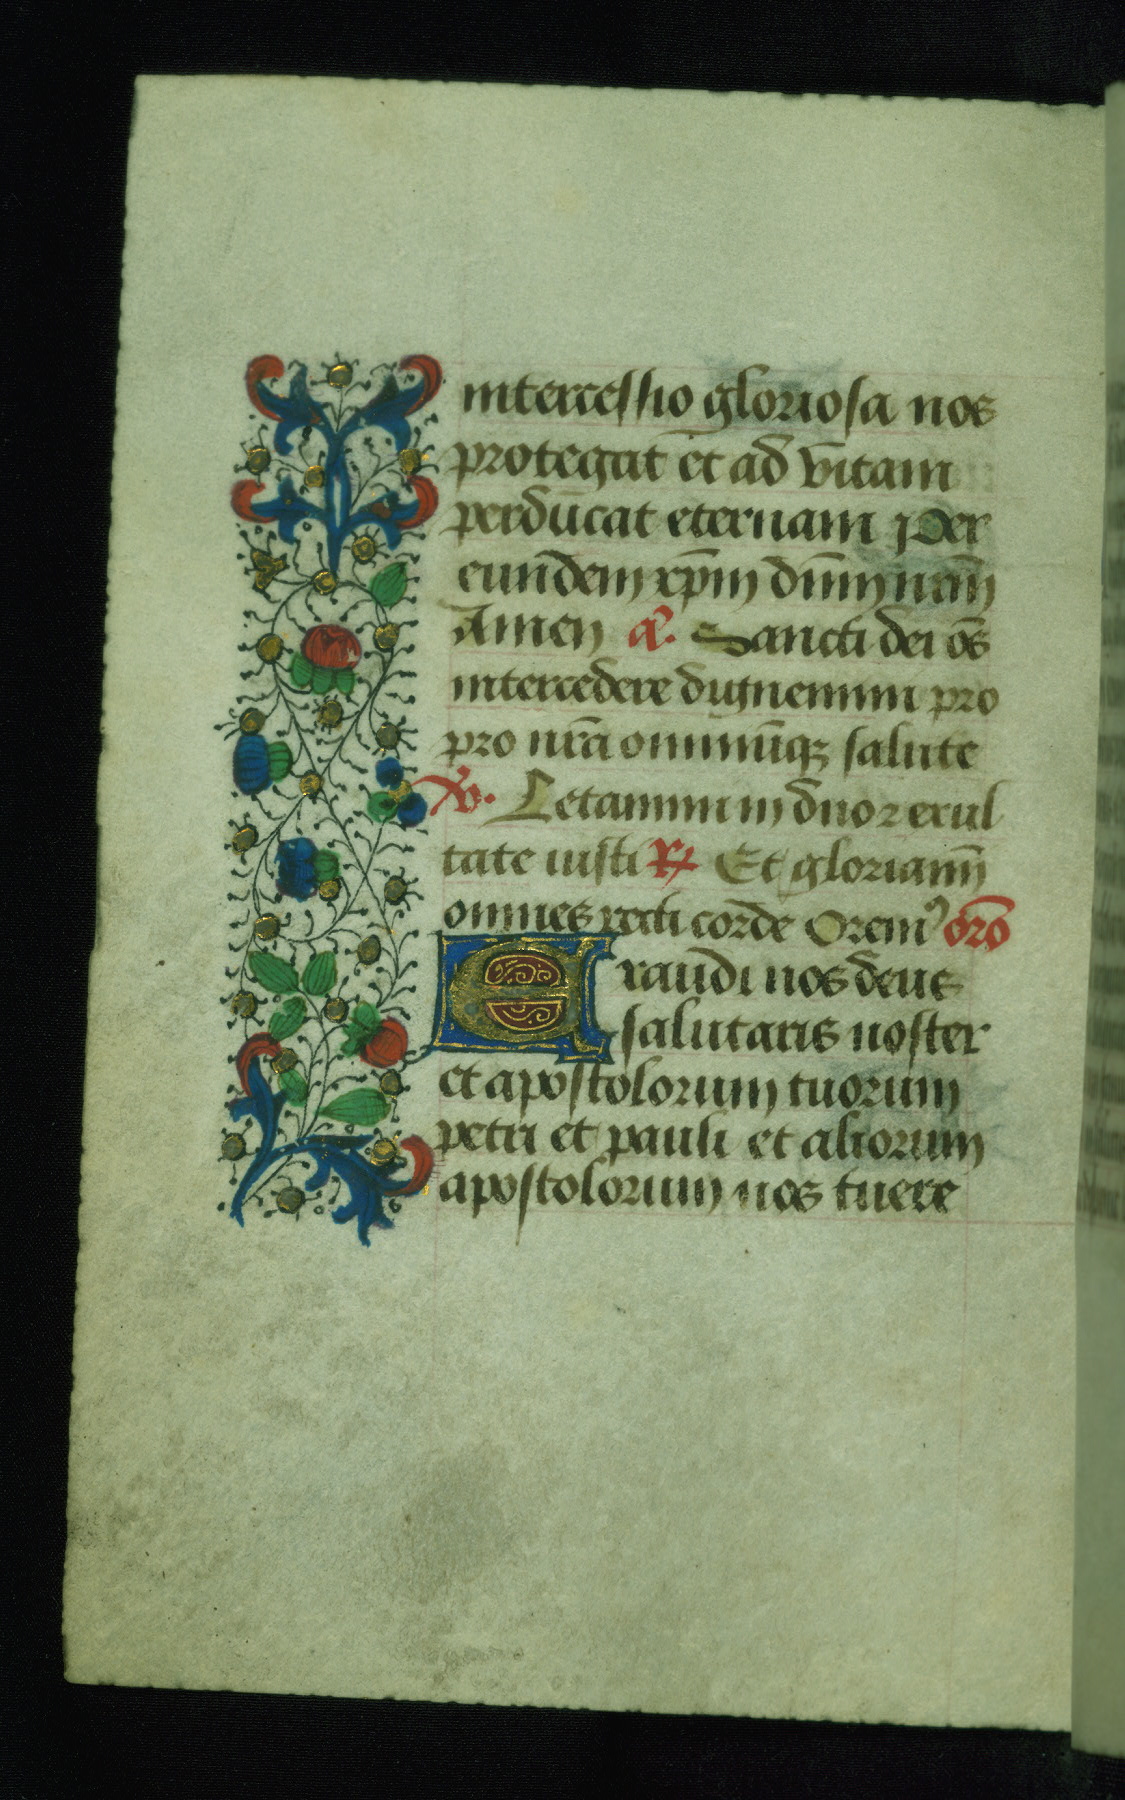 intercessio gloriosa nos
protegat et ad vitam
perducat eternam Per
eundem xp̄m dn̄m nr̄m
Amen a᷈. Sancti dei om̄s
intercedere dignemini pro
pro nr̄a omniūqꝫ salute
V. Letamini in dn̄o ⁊ exul
tate iusti ℟ Et gloriamī
omnes recti corde Oremꝰ or̄o
Exaudi nos deus
salutaris noster
et apostolorum tuorum
petri et pauli et aliorum
apostolorum nos tuere